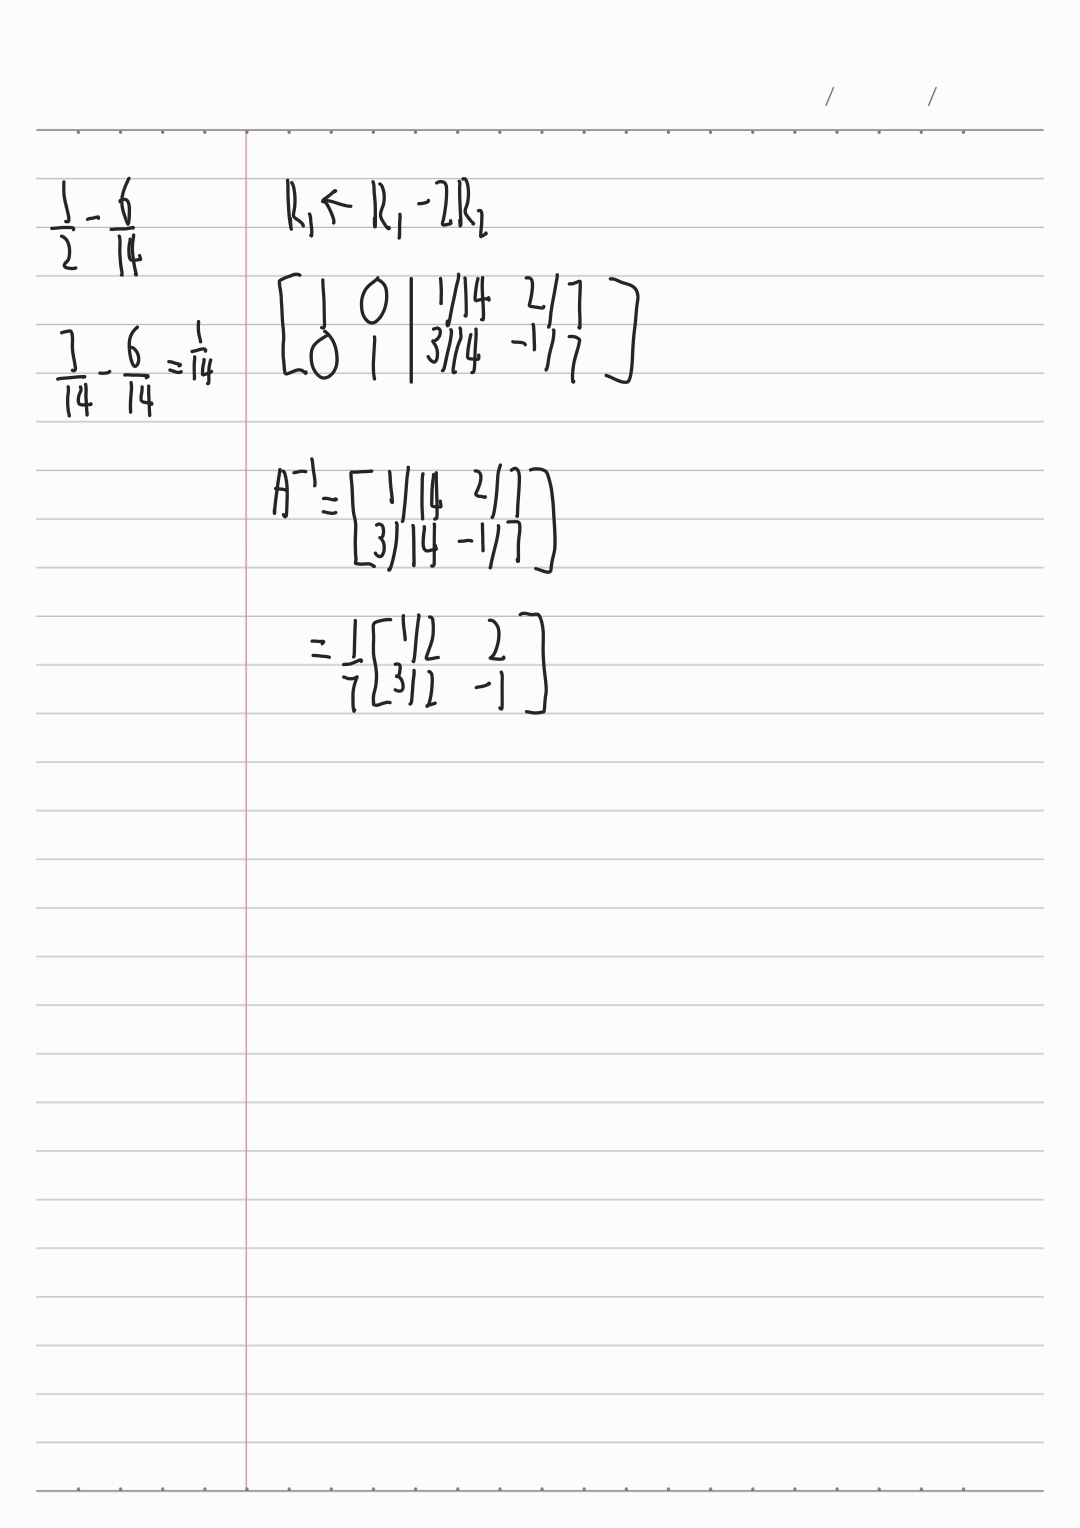 / /
1/2 - 6/14
7/14 - 6/14 = 1/14
R₁ ← R₁ - 2R₂
[ 1 0 | 1/14 2/7 ]
[ 0 1 | 3/14 -1/7 ]
A⁻¹ = [ 1/14 2/7 ]
[ 3/14 -1/7 ]
= 1/7 [ 1/2 2 ]
[ 3/2 -1 ]